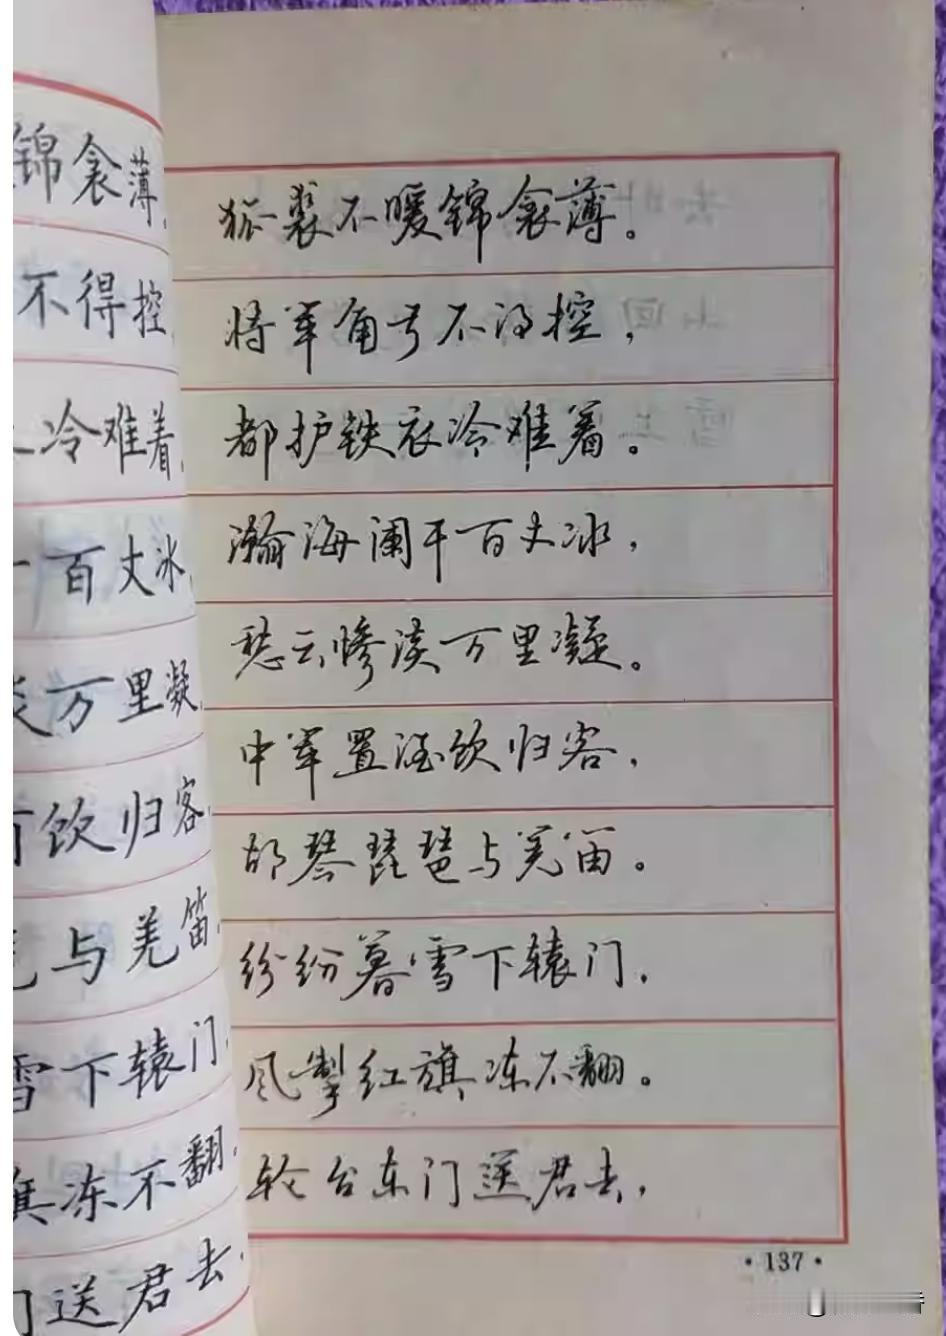 锦衾薄,
不得控,
冷难着,
百丈冰,
万里凝,
饮归客,
与羌笛,
雪下辕门,
旗冻不翻,
门送君去,
狐裘不暖锦衾薄。
将军角弓不得控,
都护铁衣冷难着。
瀚海阑干百丈冰,
愁云惨淡万里凝。
中军置酒饮归客,
胡琴琵琶与羌笛。
纷纷暮雪下辕门,
风掣红旗冻不翻。
轮台东门送君去,
·137·